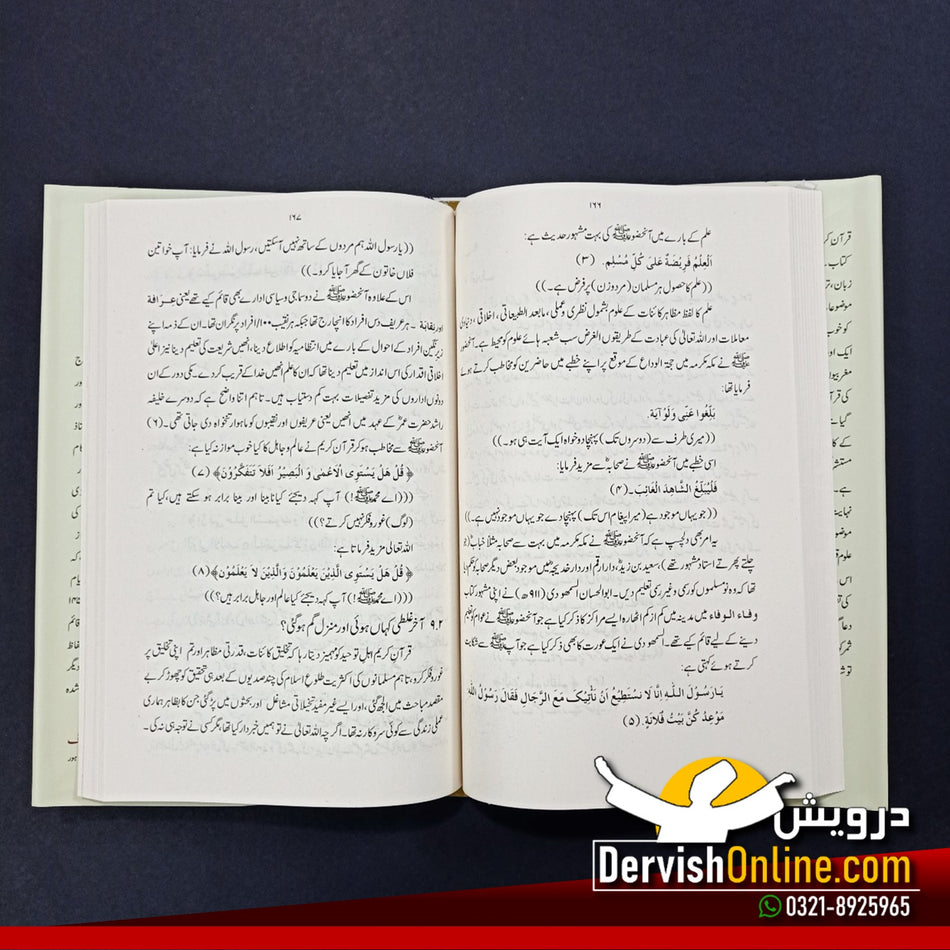 ۱۶۶
علم کے بارے میں آنحضورﷺ کی بہت مشہور حدیث ہے:
اَلْعِلْمُ فَرِيْضَةٌ عَلىٰ كُلِّ مُسْلِمٍ۔ (۳)
((علم کا حصول ہر مسلمان (مردوزن) پر فرض ہے۔))
علم کا لفظ مظاہر کائنات کے علوم بشمول نظری و عملی، مابعد الطبیعاتی، اخلاقی، دنیاوی
معاملات اور اللہ تعالیٰ کی عبادت کے طریقوں الغرض سب شعبہ ہائے علوم کو محیط ہے۔ آنحضور
ﷺ نے مکہ مکرمہ میں حجۃ الوداع کے موقع پر اپنے خطبے میں حاضرین کو مخاطب کرتے ہوئے
فرمایا تھا:
بَلِّغُوا عَنِّى وَلَوْ آيَة۔
((میری طرف سے (دوسروں تک) پہنچا دو خواہ ایک آیت ہی ہو۔))
اسی خطبے میں آنحضورﷺ نے صحابہؓ سے مزید فرمایا:
فَلْيُبَلِّغِ الشَّاهِدُ الْغَائِبَ۔ (۴)
((جو یہاں موجود ہے (میرا پیغام اس تک) پہنچا دے جو یہاں موجود نہیں ہے۔))
یہ امر بھی دلچسپ ہے کہ آنحضورﷺ نے مکہ مکرمہ میں بہت سے صحابہ مثلاً خبابؓ (جو
چلتے پھرتے استاد مشہور تھے) سعید بن زیدؓ، دارارقم اور دار خدیجہؓ میں موجود بعض دیگر صحابہ کو حکم دیا
تھا کہ وہ نو مسلموں کو رسمی وغیر رسمی تعلیم دیں۔ ابوالحسان السمھودی (۹۱۱ھ) نے اپنی مشہور کتاب
وفاء الوفاء میں مدینہ میں کم از کم اٹھارہ ایسے مراکز کا ذکر کیا ہے جو آنحضورﷺ نے عوام کو تعلیم
دینے کے لیے قائم کیے تھے۔ السمھودی نے ایک عورت کا بھی ذکر کیا ہے جو آپﷺ سے شکایت
کرتے ہوئے کہتی ہے:
يَارَسُوْلَ اللّٰـهِ اِنَّا لَا نَسْتَطِيْعُ اَنْ نَأْتِيَكَ مَعَ الرِّجَالِ فَقَالَ رَسُوْلُ اللّٰه
مَوْعِدُ كُنَّ بَيْتُ فُلَانَةٍ۔ (۵)
۱۶۷
((یا رسول اللہ ہم مردوں کے ساتھ نہیں آسکتیں، رسول اللہ نے فرمایا: آپ خواتین
فلاں خاتون کے گھر آجایا کرو۔))
اس کے علاوہ آنحضورﷺ نے دو سماجی و سیاسی ادارے بھی قائم کیے تھے یعنی عرافة
اور نقابة ۔ ہر عریف دس افراد کا انچارج تھا جبکہ ہر نقیب ۱۰۰ افراد پر نگران تھا۔ ان کے ذمہ اپنے
زیر نگیں افراد کے احوال کے بارے میں انتظامیہ کو اطلاع دینا، انھیں شریعت کی تعلیم دینا نیز اعلیٰ
اخلاقی اقدار کی اس انداز میں تعلیم دینا تھا کہ ان کا علم انھیں خدا کے قریب کر دے۔ مکی دور کے ان
دونوں اداروں کی مزید تفصیلات بہت کم دستیاب ہیں۔ تاہم اتنا واضح ہے کہ دوسرے خلیفہ
راشد حضرت عمرؓ کے عہد میں انھیں یعنی عریفوں اور نقیبوں کو ماہوار تنخواہ دی جاتی تھی۔ (۶)
آنحضورﷺ سے مخاطب ہو کر قرآن کریم نے عالم و جاہل کا یوں موازنہ کیا ہے:
﴿ قُلْ هَلْ يَسْتَوِى الْاَعْمٰى وَ الْبَصِيْرُ اَفَلاَ تَتَفَكَّرُوْنَ﴾ (۷)
(((اے محمدﷺ!) آپ کہہ دیجئے کیا نابینا اور بینا برابر ہو سکتے ہیں، کیا تم
(لوگ) غور و فکر نہیں کرتے؟))
اللہ تعالیٰ مزید فرماتا ہے:
﴿ قُلْ هَلْ يَسْتَوِى الَّذِيْنَ يَعْلَمُوْنَ وَالَّذِيْنَ لاَ يَعْلَمُوْنَ﴾ (۸)
(((اے محمدﷺ!) آپ کہہ دیجئے کیا عالم اور جاہل برابر ہیں؟))
۹.۲ آخر غلطی کہاں ہوئی اور منزل گم ہوگئی؟
قرآن کریم اہل توحید کو مہمیز دیتا رہا کہ تخلیق کائنات، قدرتی مظاہر اور تم اپنی تخلیق پر
غور و فکر کرو، تاہم مسلمانوں کی اکثریت طلوع اسلام کی چند صدیوں کے بعد ہی تحقیق کو چھوڑ کر بے
مقصد مباحث میں الجھ گئی، اور ایسے غیر مفید تخیلاتی مشاغل اور بحثوں میں پڑ گئی جن کا بظاہر ہماری
عملی زندگی سے کوئی سروکار نہ تھا۔ اگرچہ اللہ تعالیٰ نے تو ہمیں خبردار کیا تھا مگر کسی نے توجہ ہی نہ کی۔
درویش
DervishOnline.com
0321-8925965